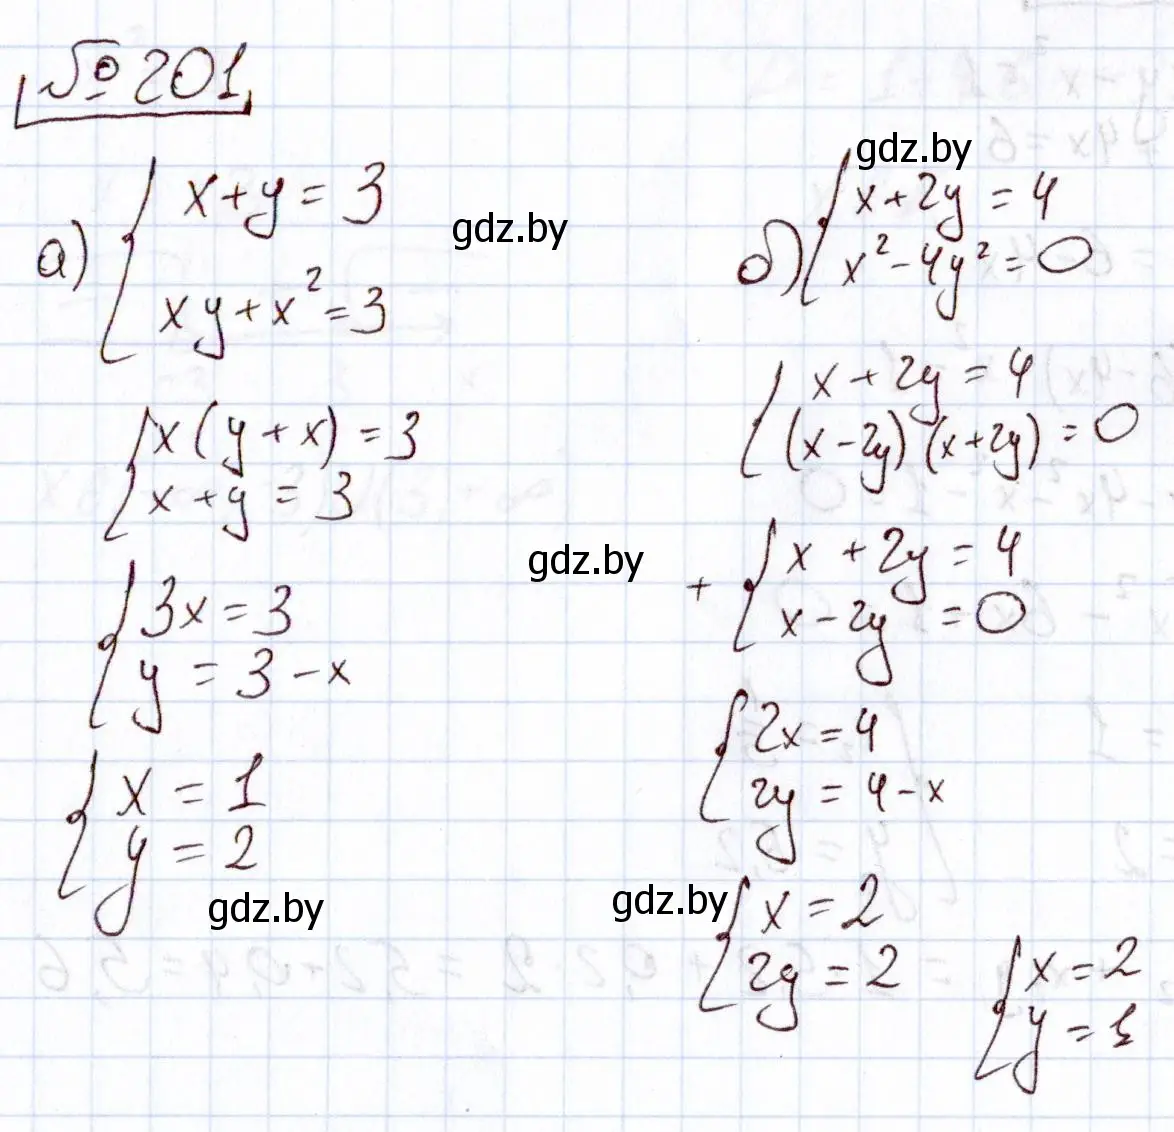 № 201
а) { x + y = 3
xy + x² = 3
{ x (y + x) = 3
x + y = 3
{ 3x = 3
y = 3 - x
{ x = 1
y = 2
gdz.by
gdz.by
gdz.by
gdz.by
б) { x + 2y = 4
x² - 4y² = 0
{ x + 2y = 4
(x - 2y) (x + 2y) = 0
+ { x + 2y = 4
x - 2y = 0
{ 2x = 4
2y = 4 - x
gdz.by
{ x = 2
2y = 2
{ x = 2
y = 1